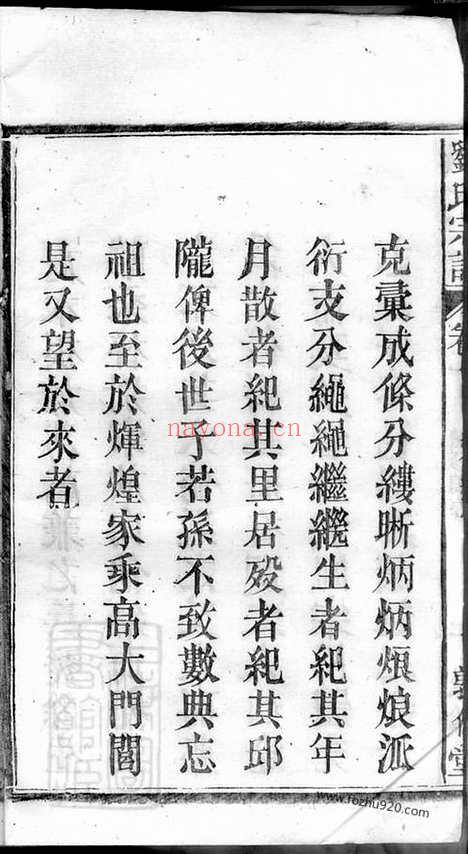 克彙成條分縷晰炳炳烺烺派
衍支分繩繩繼繼生者紀其年
月散者紀其里居歿者紀其邱
隴俾後世子若孫不致數典忘
祖也至於煇煌家乘高大門閭
是又望於來者
劉氏宗譜
nayona.cn
www.fozhu920.com